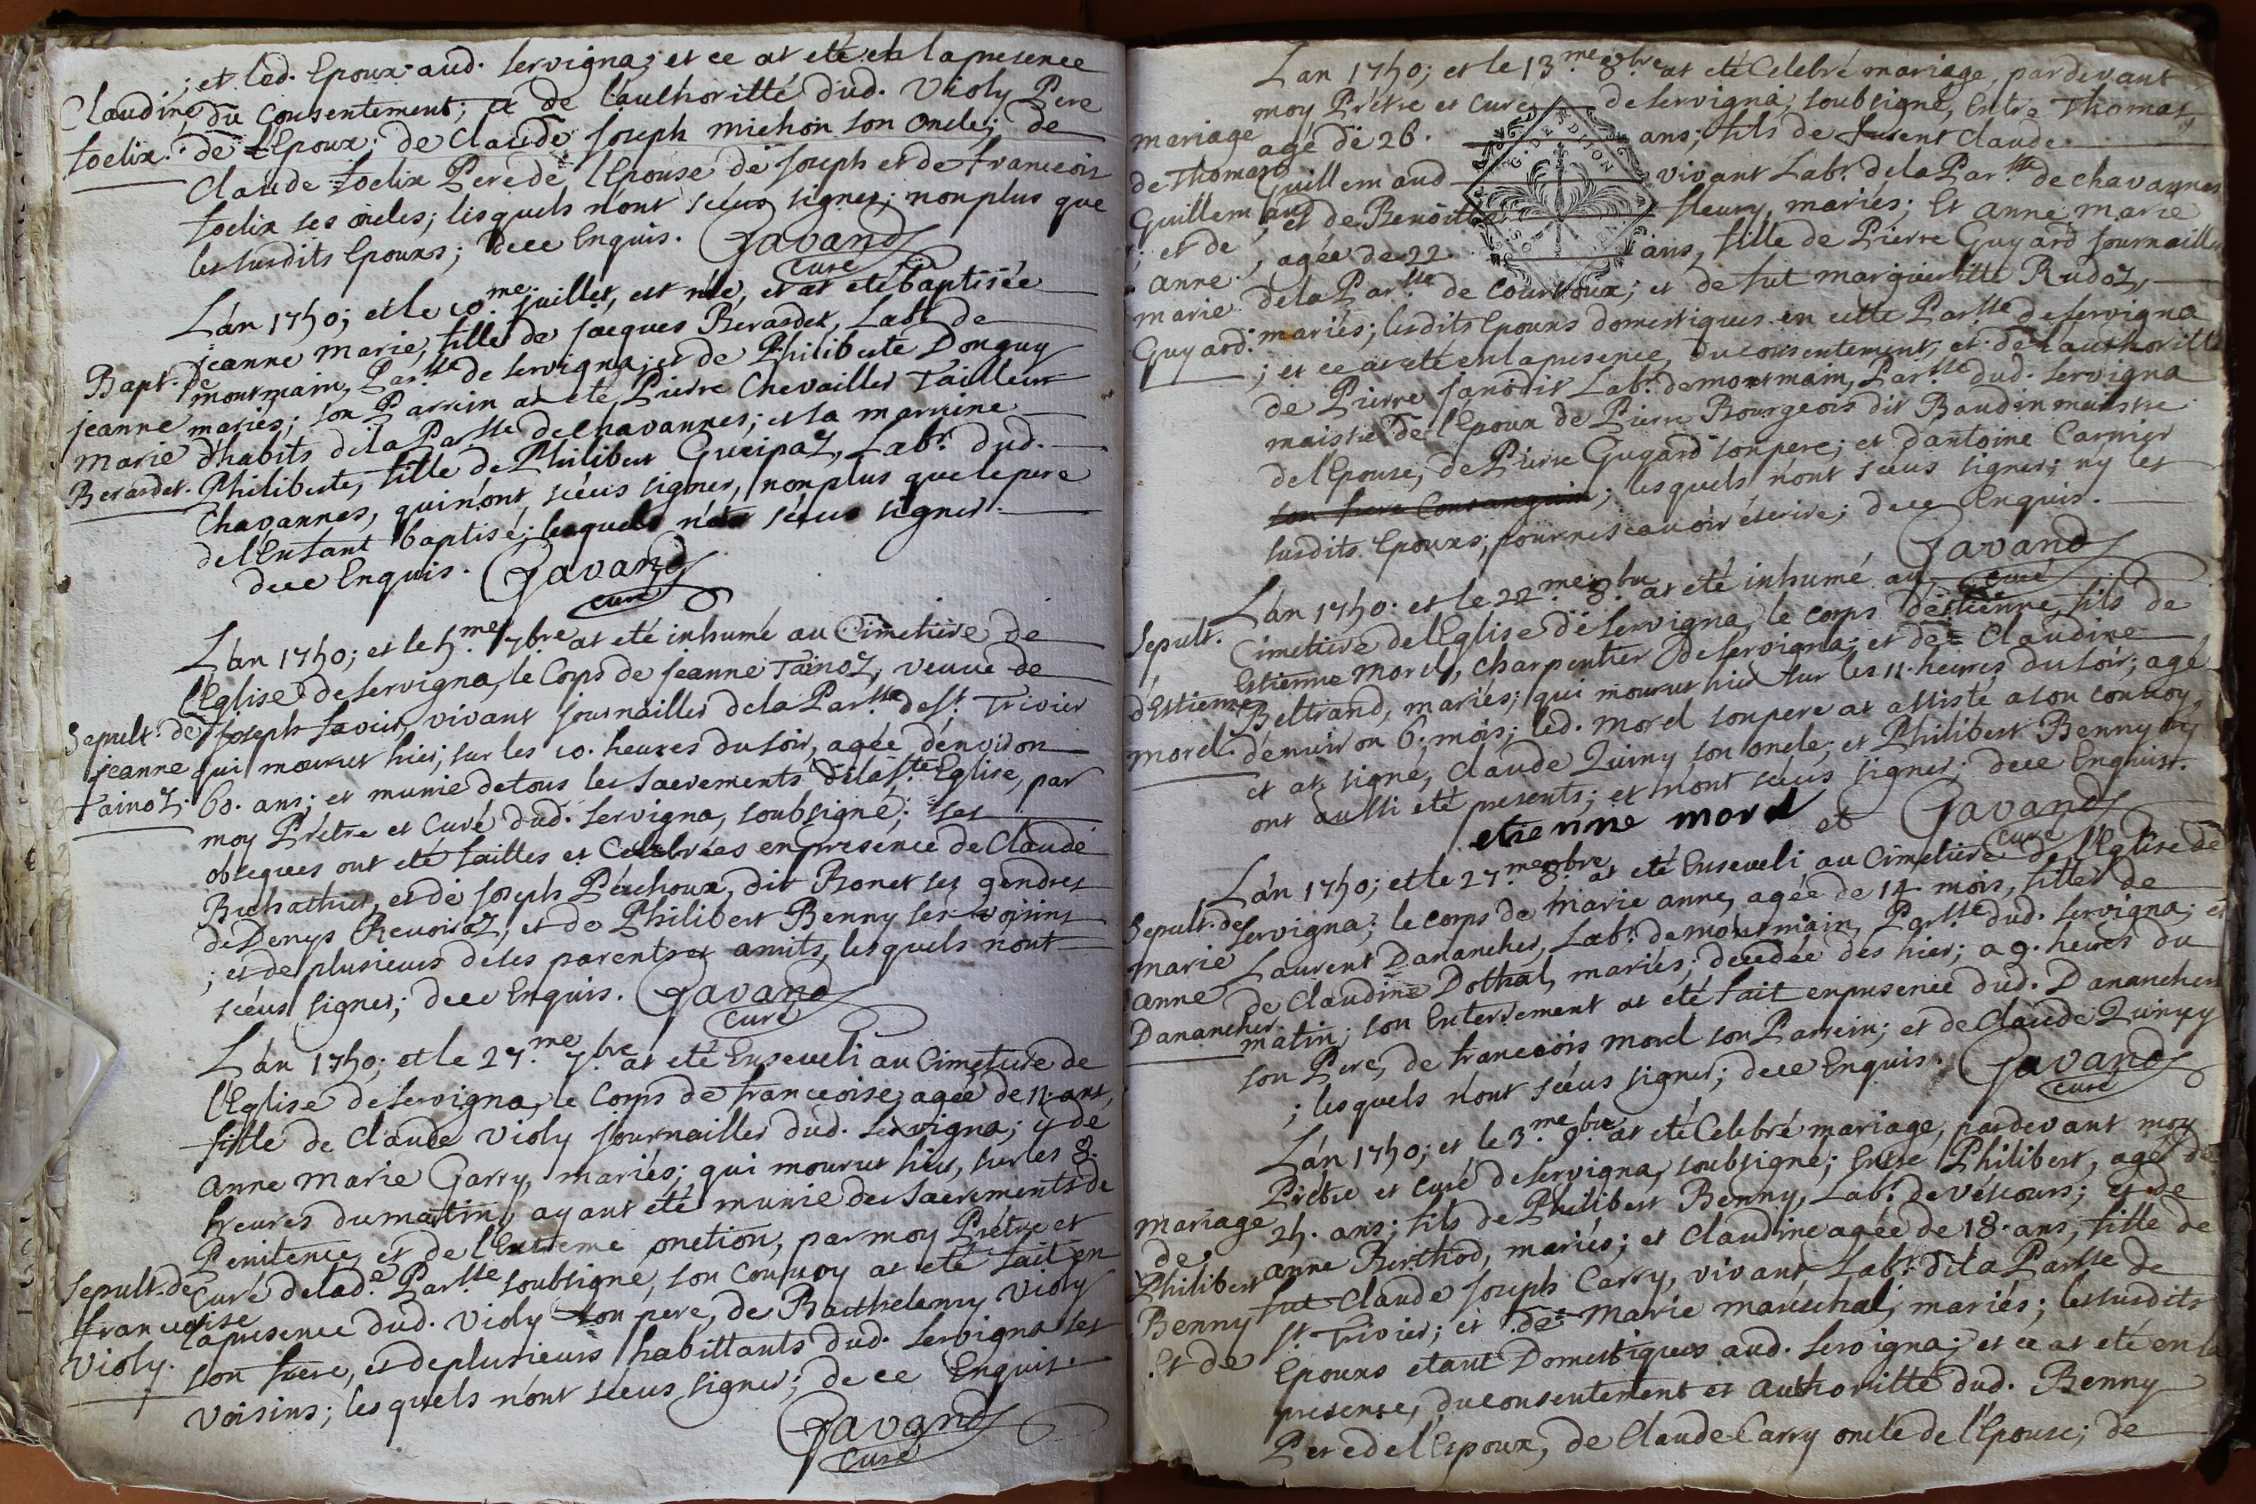 ; et led. Epoux aud. Servigna; et ce at eté en la presence
Claudine du Consentement; et de l'authoritté dud. Violy Pere
foelix. de l'Epoux. de Claude Joseph michon son Oncle; de
Claude foelix Pere de l'Epouse de Joseph et de francois
foelix ses oncles; lesquels n'ont scéus signer; non plus que
les susdits Epoux; de ce Enquis. Gavand
curé
L'an 1750; et le 10.me juillet, est née, et at eté baptisée
jeanne marie, fille de jacques Berardet, Labr. de
Bapt. de montmain, Parsse de Servigna; et de Philiberte Donguy
jeanne mariés; son Parrein at eté Pierre Chevailler Tailleur
marie d'habits de la Parsse de chavannes; et la marraine
Berardet. Philiberte, fille de Philibert Gueipaz, Labr. dud.
Chavannes, qui n'ont scéus signer, non plus que le pere
de l'Enfant baptisé; lesquels n'ont scéus signer.
de ce Enquis. Gavand
curé
L'an 1750; et le 5.me 7.bre at eté inhumé au Cimetiere de
l'Eglise de Servigna, le Corps de jeanne Tainoz, veuve de
Sepult. de Joseph favier, vivant journailler de la Parsse de St. Trivier
jeanne qui mourut hier, sur les 10. heures du soir, agée d'environ
Tainoz. 60. ans; et munie de tous les sacrements de la Ste Eglise, par
moy Prêtre et Curé dud. Servigna, soubsigné; ses
obseques ont eté faittes et Celebrées en presence de Claude
Buchathier, et de Joseph Péuchoux, dit Bonet ses gendres
de Denys Revoiraz, et de Philibert Benny ses voisins
; et de plusieurs de ses parents et amits, lesquels n'ont
scéus signer; de ce Enquis. Gavand
curé
L'an 1750; et le 27.me 7.bre at eté Enseveli au Cimetiere de
l'Eglise de Servigna, le Corps de francoise, agée de 11. ans,
fille de Claude Violy journailler dud. Servigna; et de
anne Marie Garry, mariés; qui mourut hier, sur les 8.
heures du matin, ayant eté munie des Sacrements de
Penitence, et de l'Extreme onction, par moy Prêtre et
Sepult. de Curé de lad.e Parsse soubsigné, son Convoy at eté fait en
francoise la presence dud. Violy son pere, de Barthelemy Violy
Violy. son frere, et de plusieurs habittants dud. Servigna ses
voisins; lesquels n'ont scéus signer; de ce Enquis.
Gavand
curé
L'an 1750; et le 13.me 8.bre at eté Celebré mariage, pardevant
moy Prêtre et curé de Servigna, soubsigné, Entre Thomas,
mariage agé de 26. ans; fils de furent Claude
de Thomas Guillemaud vivant Labr. de la Parsse de chavannes
Guillemaud, et de Benoitte fleury, mariés; Et anne marie
; et de , agée de 22. ans, fille de Pierre Guyard journailler
anne de la Parsse de Courtoux; et de fut marguerite Rudoz,
marie mariés; lesdits Epoux domestiques en cette Parsse de Servigna
Guyard. ; et ce at eté en la presence, du consentement, et de l'authoritté
de Pierre janodit Labr. de montmain, Parsse dud. Servigna
maistre de l'Epoux de Pierre Bourgeois dit Baudin maistre
de l'Epouse, de Pierre Guyard son pere; et d'antoine Carnier
son frere Consanguin; lesquels n'ont scéus signer; n'y les
susdits Epoux; pour ne scavoir écrire; de ce Enquis.
Gavand
curé
L'an 1750. et le 22.me 8.bre at eté inhumé au
Sepult. Cimetiere de l'Eglise de Servigna, le corps d'Estienne, fils de
Estienne Morel, charpentier de Servigna; et de Claudine
d'Estienne Beltrand, mariés; qui mourut hier sur les 11. heures du soir; agé
morel. d'environ 6. mois; led. morel son pere at assisté a son convoy,
et at signé, Claude Quiny son oncle; et Philibert Benny y
ont aussi eté presents; et n'ont scéus signer; de ce Enquis.
etienne morel et Gavand
curé
L'an 1750; et le 27.me 8.bre at eté Enseveli, au Cimetiere de l'Eglise de
Sepult. de Servigna; le corps de Marie anne, agée de 14 mois, fille de
marie Laurent Danancher, Labr. de montmain, Parsse dud. Servigna; et
anne de Claudine Dothal, mariés; decedée des hier; a 9. heures du
Danancher. matin; son Enterrement at eté fait en presence dud. Danancher
son Pere, de francois morel son Parrein; et de Claude Quinyy
; lesquels n'ont scéus signer; de ce Enquis. Gavand
curé
L'an 1750; et le 3.me 9.bre at eté Celebré mariage, pardevant moy
Prêtre et curé de Servigna, soubsigné; Entre Philibert, agé de
mariage 25. ans; fils de Philibert Benny, Labr. de Vescours; et de
de anne Berthod, mariés; et Claudine agée de 18. ans, fille de
Philibert fut Claude Joseph Carry, vivant Labr. de la Parsse de
Benny St. Trivier; et de Marie maréschal, mariés; les susdits
Et de Epoux etant Domestiques aud. Servigna; et ce at eté en la
presence, du consentement et authoritté dud. Benny
Pere de l'Epoux, de Claude Carry oncle de l'Epouse; de